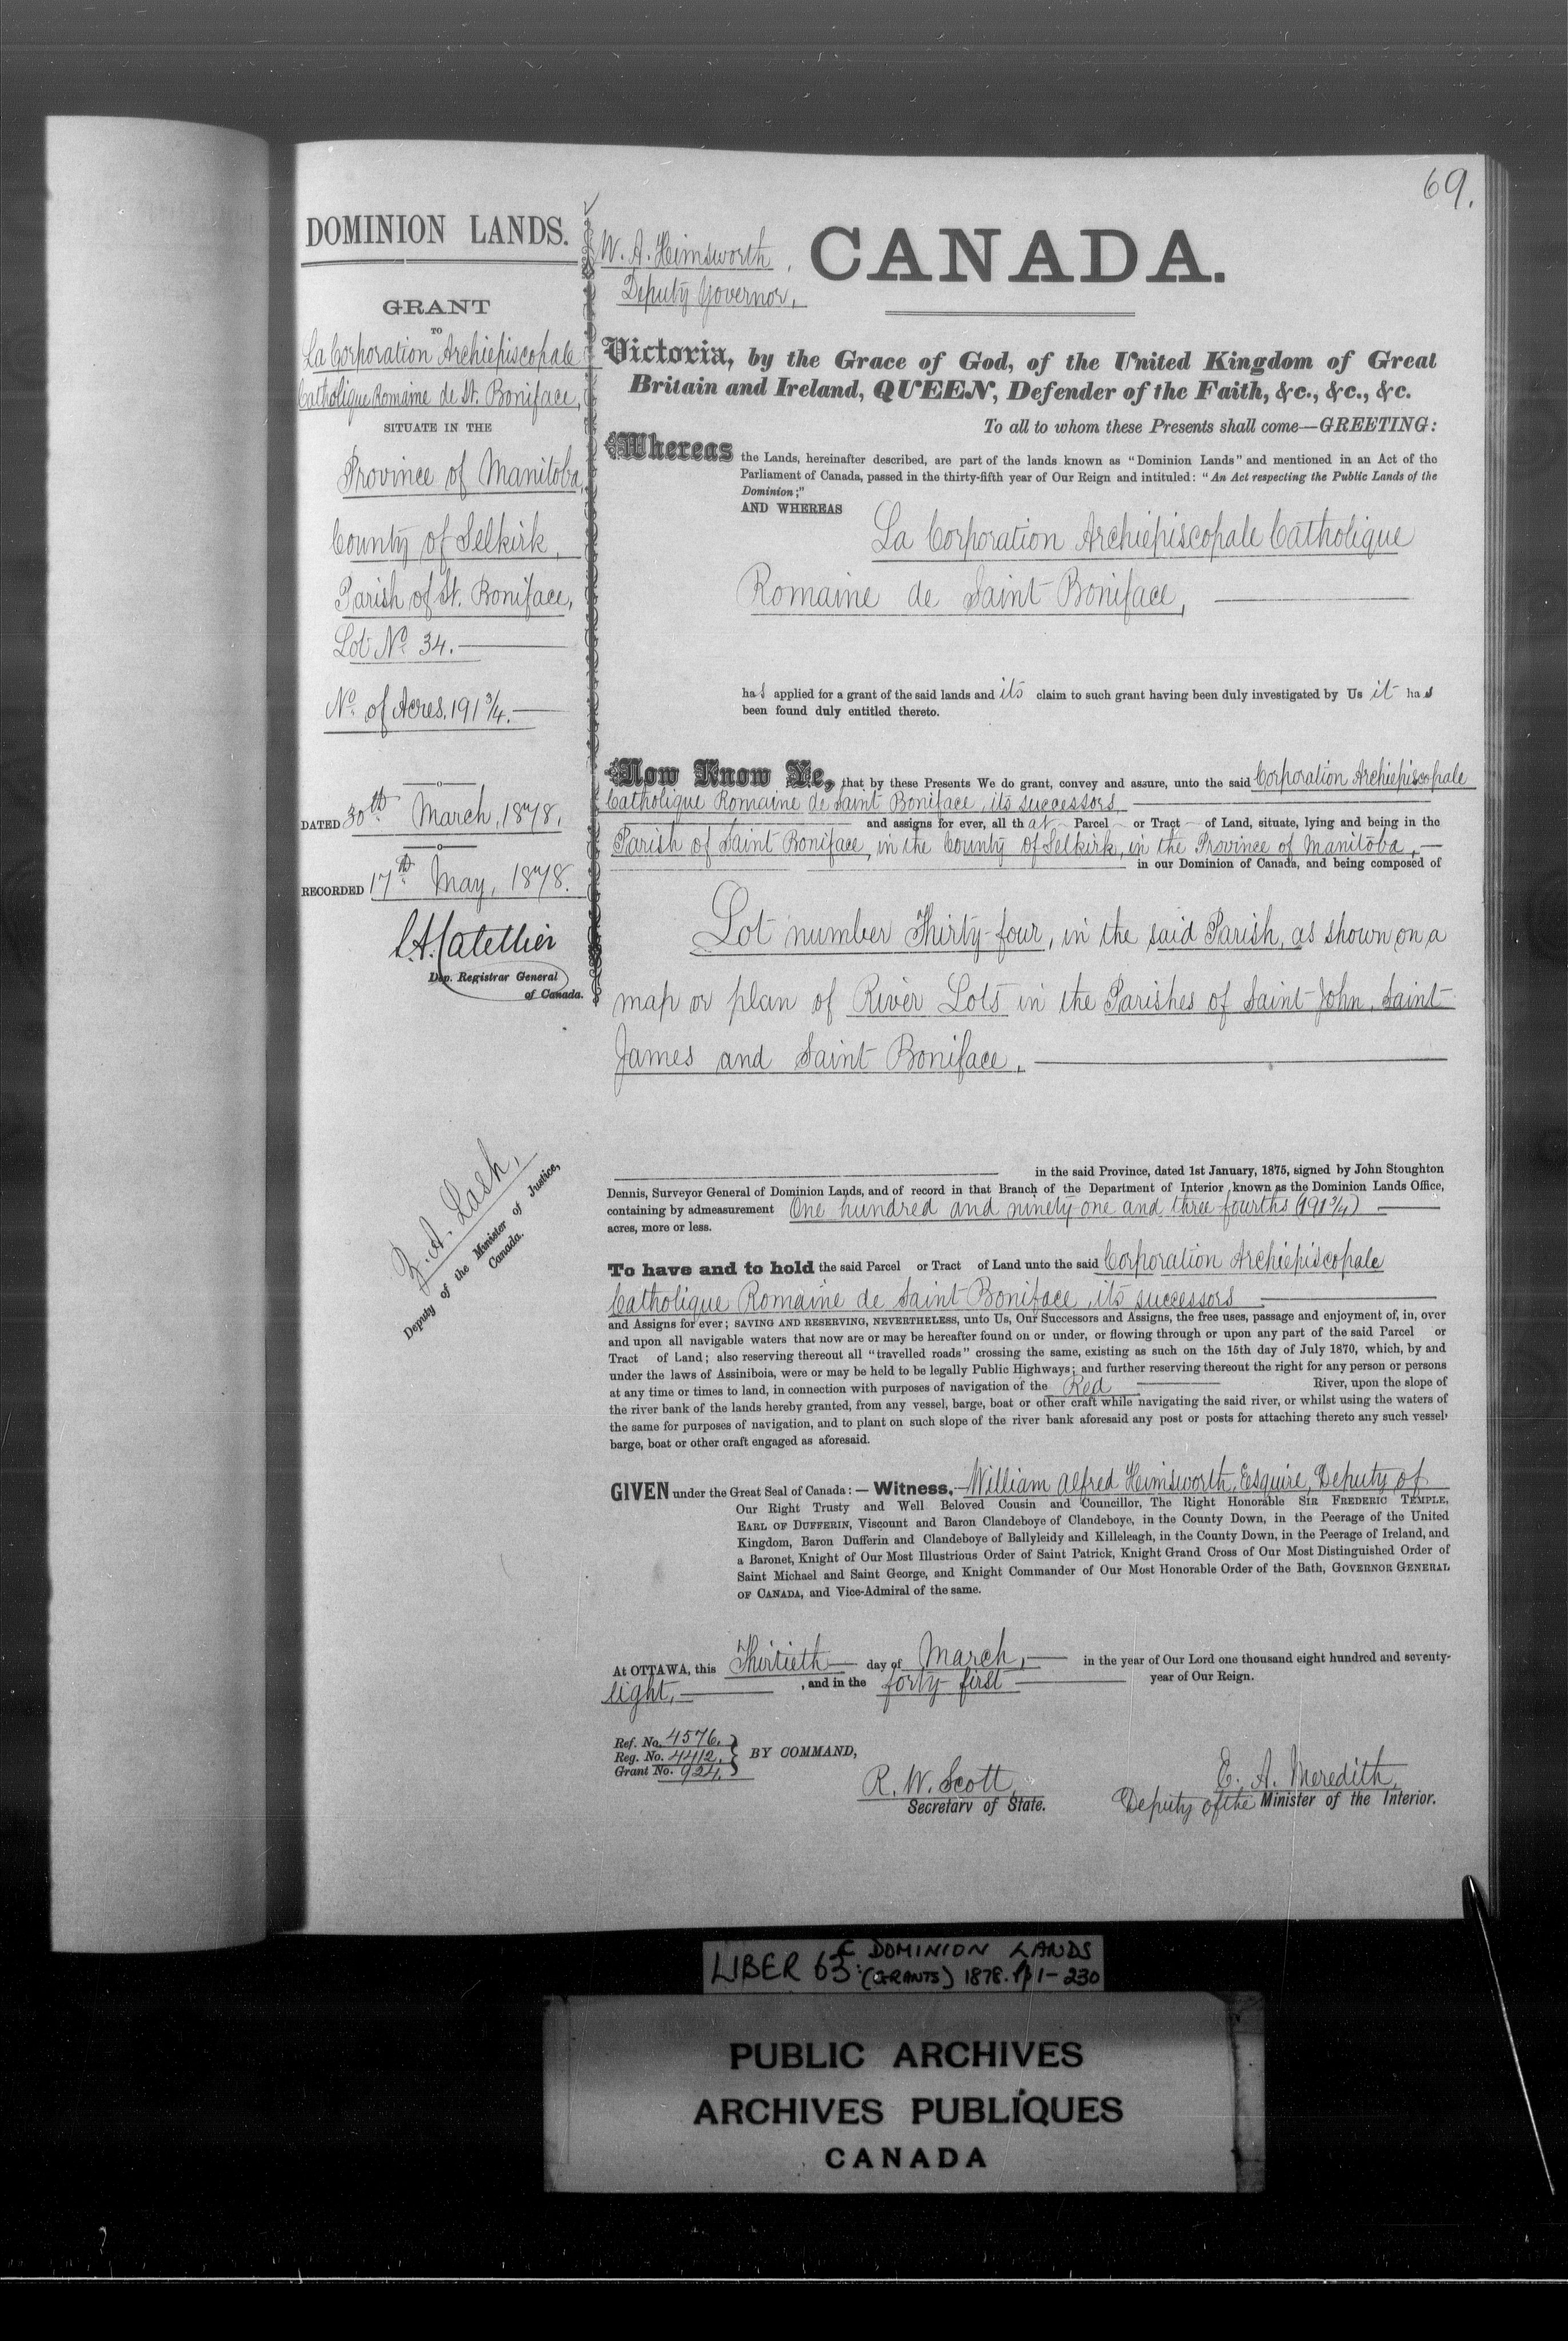 69.
DOMINION LANDS.
GRANT
TO
La Corporation Archiépiscopale
Catholique Romaine de St. Boniface,
SITUATE IN THE
Province of Manitoba,
County of Selkirk,
Parish of St. Boniface,
Lot No. 34.
No. of Acres, 191 3/4.
DATED 30th March, 1878.
RECORDED 17th May, 1878.
Dep. Registrar General
of Canada.
Z. A. Lash,
Deputy of the Minister of Justice,
Canada.
W. A. Himsworth,
Deputy Governor,
CANADA.
Victoria, by the Grace of God, of the United Kingdom of Great
Britain and Ireland, QUEEN, Defender of the Faith, &c., &c., &c.
To all to whom these Presents shall come—GREETING:
Whereas the Lands, hereinafter described, are part of the lands known as "Dominion Lands" and mentioned in an Act of the
Parliament of Canada, passed in the thirty-fifth year of Our Reign and intituled: "An Act respecting the Public Lands of the
Dominion;"
AND WHEREAS La Corporation Archiépiscopale Catholique
Romaine de Saint Boniface,
has applied for a grant of the said lands and its claim to such grant having been duly investigated by Us it has
been found duly entitled thereto.
Now Know Ye, that by these Presents We do grant, convey and assure, unto the said Corporation Archiépiscopale
Catholique Romaine de Saint Boniface, its successors
and assigns for ever, all that Parcel or Tract of Land, situate, lying and being in the
Parish of Saint Boniface, in the County of Selkirk, in the Province of Manitoba,
in our Dominion of Canada, and being composed of
Lot number Thirty-four, in the said Parish, as shown on a
map or plan of River Lots in the Parishes of Saint John, Saint
James and Saint Boniface,
in the said Province, dated 1st January, 1875, signed by John Stoughton
Dennis, Surveyor General of Dominion Lands, and of record in that Branch of the Department of Interior, known as the Dominion Lands Office,
containing by admeasurement One hundred and ninety-one and three-fourths (191 3/4)
acres, more or less.
To have and to hold the said Parcel or Tract of Land unto the said Corporation Archiépiscopale
Catholique Romaine de Saint Boniface, its successors
and Assigns for ever; SAVING AND RESERVING, NEVERTHELESS, unto Us, Our Successors and Assigns, the free uses, passage and enjoyment of, in, over
and upon all navigable waters that now are or may be hereafter found on or under, or flowing through or upon any part of the said Parcel or
Tract of Land; also reserving thereout all "travelled roads" crossing the same, existing as such on the 15th day of July 1870, which, by and
under the laws of Assiniboia, were or may be held to be legally Public Highways; and further reserving thereout the right for any person or persons
at any time or times to land, in connection with purposes of navigation of the Red River, upon the slope of
the river bank of the lands hereby granted, from any vessel, barge, boat or other craft while navigating the said river, or whilst using the waters of
the same for purposes of navigation, and to plant on such slope of the river bank aforesaid any post or posts for attaching thereto any such vessel,
barge, boat or other craft engaged as aforesaid.
GIVEN under the Great Seal of Canada:— Witness, William Alfred Himsworth, Esquire, Deputy of
Our Right Trusty and Well Beloved Cousin and Councillor, The Right Honorable SIR FREDERIC TEMPLE,
EARL OF DUFFERIN, Viscount and Baron Clandeboye of Clandeboye, in the County Down, in the Peerage of the United
Kingdom, Baron Dufferin and Clandeboye of Ballyleidy and Killeleagh, in the County Down, in the Peerage of Ireland, and
a Baronet, Knight of Our Most Illustrious Order of Saint Patrick, Knight Grand Cross of Our Most Distinguished Order of
Saint Michael and Saint George, and Knight Commander of Our Most Honorable Order of the Bath, GOVERNOR GENERAL
OF CANADA, and Vice-Admiral of the same.
At OTTAWA, this Thirtieth day of March, in the year of Our Lord one thousand eight hundred and seventy-
eight, , and in the forty-first year of Our Reign.
Ref. No. 4576.
Reg. No. 4412. } BY COMMAND,
Grant No. 924.
R. W. Scott,
Secretary of State.
E. A. Meredith,
Deputy of the Minister of the Interior.
LIBER 63: C DOMINION LANDS
(GRANTS) 1878. pp 1-230
PUBLIC ARCHIVES
ARCHIVES PUBLIQUES
CANADA